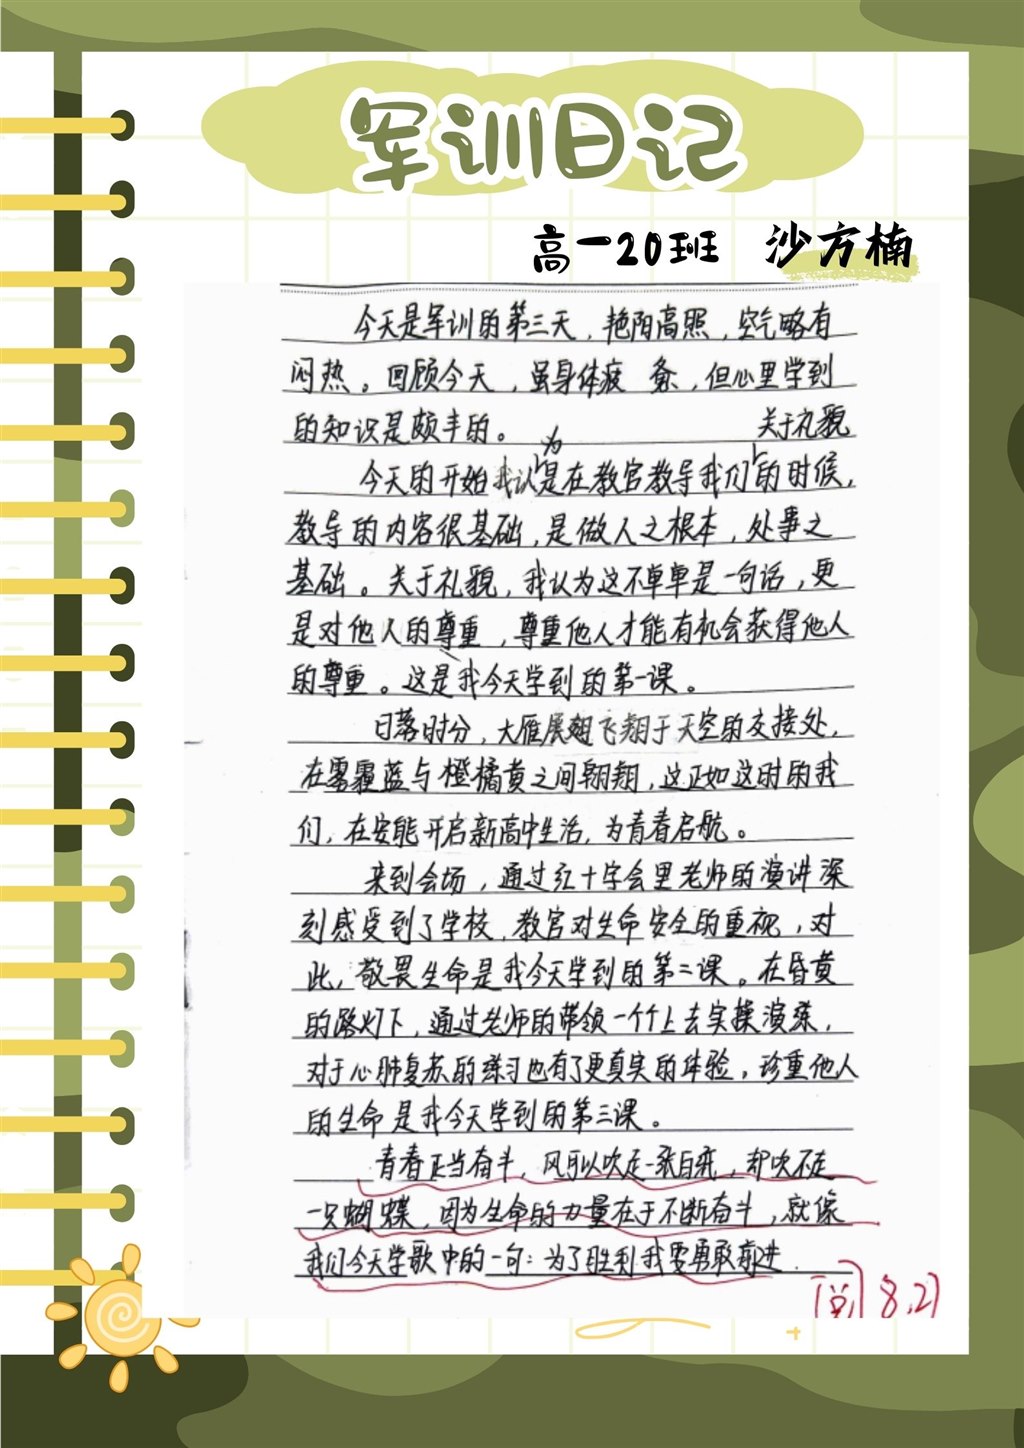 军训日记
高一20班 沙方楠
今天是军训的第三天，艳阳高照，空气略有
闷热。回顾今天，虽身体疲惫，但心里学到
的知识是颇丰的。
为 关于礼貌
今天的开始我认是在教官教导我们的时候，
教导的内容很基础，是做人之根本，处事之
基础。关于礼貌，我认为这不单单是一句话，更
是对他人的尊重，尊重他人才能有机会获得他人
的尊重。这是我今天学到的第一课。
日落时分，大雁展翅飞翔于天空的交接处，
在雾霾蓝与橙橘黄之间翱翔，这正如这时的我
们，在安能开启新高中生活，为青春启航。
来到会场，通过红十字会里老师的演讲深
刻感受到了学校，教官对生命安全的重视，对
此，敬畏生命是我今天学到的第二课。在昏黄
的路灯下，通过老师的带领一个个上去实操演练，
对于心肺复苏的练习也有了更真实的体验，珍重他人
的生命是我今天学到的第三课。
青春正当奋斗，风可以吹走一张白纸，却吹不走
一只蝴蝶，因为生命的力量在于不断奋斗，就像
我们今天学歌中的一句：为了胜利我要勇敢前进.
阅 8.21